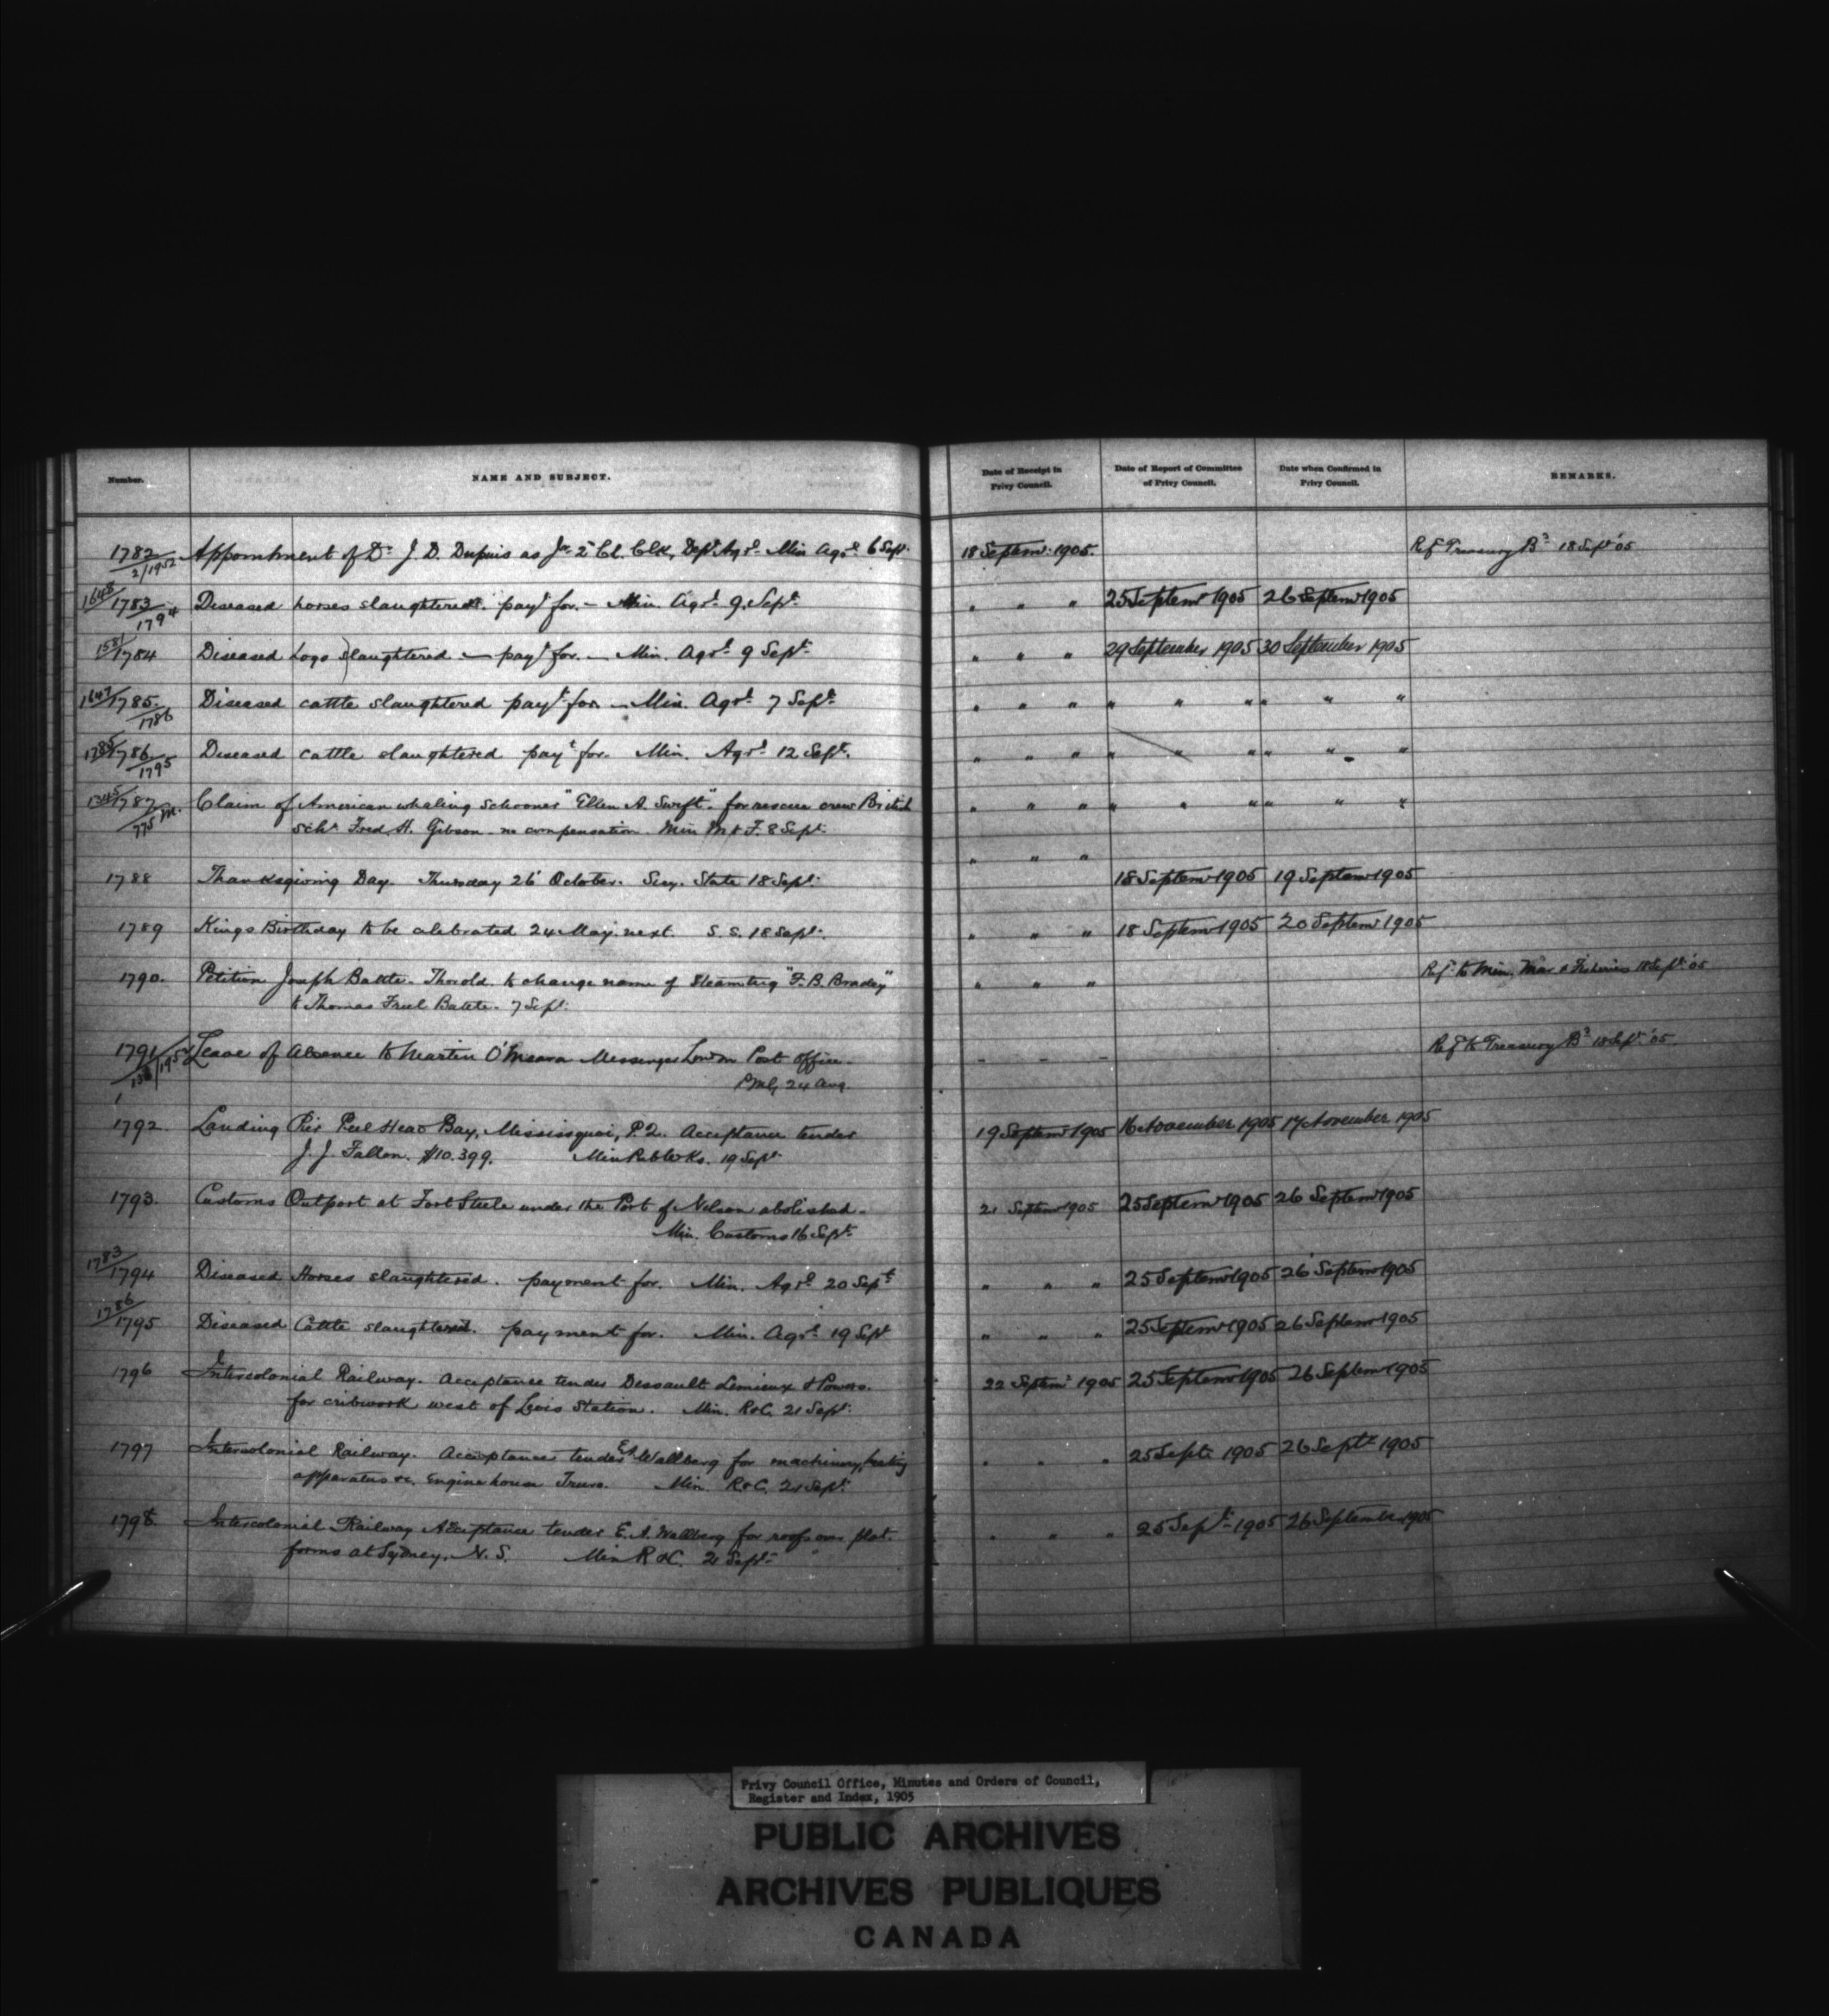 Number. NAME AND SUBJECT. Date of Receipt in Privy Council. Date of Report of Committee of Privy Council. Date when Confirmed in Privy Council. REMARKS.
1782 2/1952 Appointment of Dr. J. D. Dupuis as Jr. 2d Cl. Clk, Dept. Agrl. Min Agrl. 6 Sept. 18 Septemr. 1905. Ref Treasury Bd 18 Sept '05
1648 1783 1794 Diseased horses slaughtered. payt for. — Min. Agrl. 9. Sept. " " " 25 Septemr 1905 26 Septemr 1905
1581 1784 Diseased hogs slaughtered — payt for. — Min. Agrl. 9 Sept. " " " 29 September 1905 30 September 1905
1647 1785. 1786 Diseased cattle slaughtered payt for — Min. Agrl. 7 Sept. " " " " " " " " "
1785 1786 1795 Diseased cattle slaughtered payt for. Min. Agrl. 12 Sept. " " " " " " " " "
1345 1787 775 M. Claim of American whaling Schooner "Ellen A. Swift". for rescue crew British " " " " " " " " "
Schr. Fred H. Gibson - no compensation. Min M & F. 8 Sept.
" " "
1788 Thanksgiving Day. Thursday 26 October. Secy. State 18 Sept. 18 Septemr 1905 19 Septemr 1905
1789 Kings Birthday to be celebrated 24 May next. S. S. 18 Sept. " " " 18 Septemr 1905 20 Septemr 1905
1790. Petition Joseph Battle. Thorold. to change name of Steamtug "F. B. Bradey" " " " Ref. to Min, Mar & Fisheries 18 Sept. '05
to Thomas Friel Battle. 7 Sept.
1791 Leave of Absence to Martin O'Meara Messenger London Post Office. - - - Ref to Treasury Bd 18 Sept. '05
PMG, 24 Aug.
1792. Landing Pier Peel Head Bay, Missisquoi, P.Q. Acceptance tender 19 Septemr 1905 16 November 1905 17 November 1905
J. J. Fallon. $10.399. Min Pub Wks. 19 Sept
1793. Customs Outport at Fort Steele under the Port of Nelson abolished. 21 Septemr 1905 25 Septemr 1905 26 Septemr 1905
Min. Customs 16 Sept.
1783 1794 Diseased Horses slaughtered. payment for. Min. Agrl. 20 Sept. " " " 25 Septemr 1905 26 Septemr 1905
1786 1795 Diseased Cattle slaughtered. payment for. Min. Agrl. 19 Sept " " " 25 Septemr 1905 26 Septemr 1905
1796 Intercolonial Railway. Acceptance tender Dessault Lemieux & Powers. 22 Septemr 1905 25 Septemr 1905 26 Septemr 1905
for cribwork west of Levis Station. Min. R & C. 21 Sept.
1797 Intercolonial Railway. Acceptance tender E A Wallberg for machinery, heating " " " 25 Sept. 1905 26 Septr 1905
apparatus &c. Engine house Truro. Min. R & C. 21 Sept.
1798. Intercolonial Railway Acceptance tender E. A. Wallberg for roofs over plat- " " " 25 Sept. 1905 26 September 1905
forms at Sydney, N. S. Min R & C. 21 Sept.
Privy Council Office, Minutes and Orders of Council,
Register and Index, 1905
PUBLIC ARCHIVES
ARCHIVES PUBLIQUES
CANADA